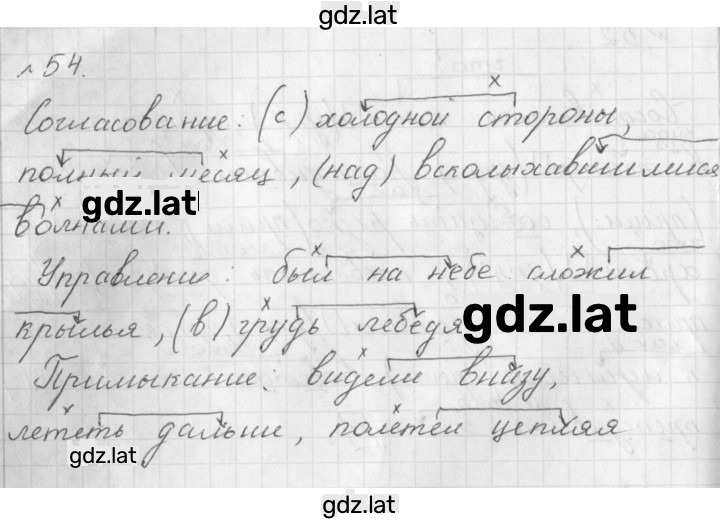 gdz.lat
№54.
Согласование: (с) холодной стороны,
полный месяц, (над) всколыхавшимися
gdz.lat
волнами.
Управление: был на небе сложил
gdz.lat
крылья, (в) грудь лебедя
Примыкание: видели внизу,
лететь дальше, полетел цепляя
gdz.lat
gdz.lat